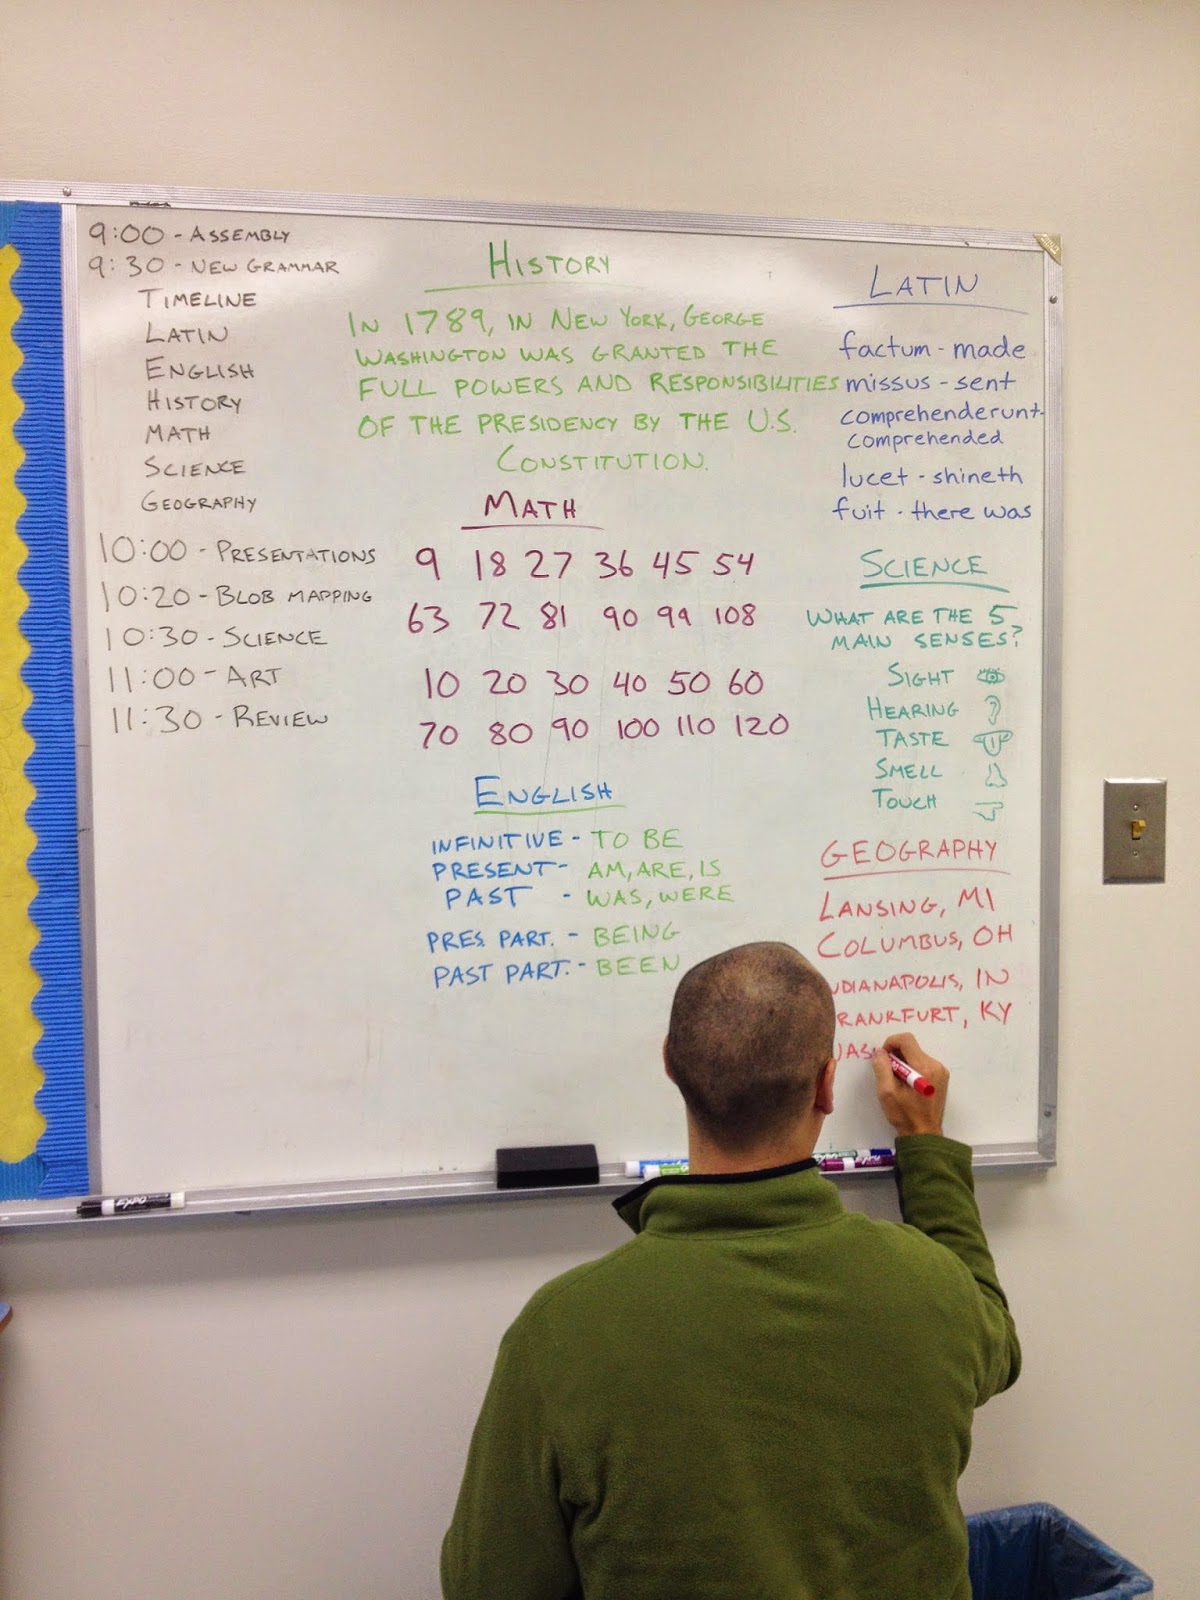 9:00 - ASSEMBLY
9:30 - NEW GRAMMAR
TIMELINE
LATIN
ENGLISH
HISTORY
MATH
SCIENCE
GEOGRAPHY
10:00 - PRESENTATIONS
10:20 - BLOB MAPPING
10:30 - SCIENCE
11:00 - ART
11:30 - REVIEW
HISTORY
IN 1789, IN NEW YORK, GEORGE
WASHINGTON WAS GRANTED THE
FULL POWERS AND RESPONSIBILITIES
OF THE PRESIDENCY BY THE U.S.
CONSTITUTION.
MATH
9 18 27 36 45 54
63 72 81 90 99 108
10 20 30 40 50 60
70 80 90 100 110 120
ENGLISH
INFINITIVE - TO BE
PRESENT - AM, ARE, IS
PAST - WAS, WERE
PRES. PART. - BEING
PAST PART. - BEEN
LATIN
factum - made
missus - sent
comprehenderunt-
comprehended
lucet - shineth
fuit - there was
SCIENCE
WHAT ARE THE 5
MAIN SENSES?
SIGHT
HEARING
TASTE
SMELL
TOUCH
GEOGRAPHY
LANSING, MI
COLUMBUS, OH
NDIANAPOLIS, IN
RANKFURT, KY
EXPO